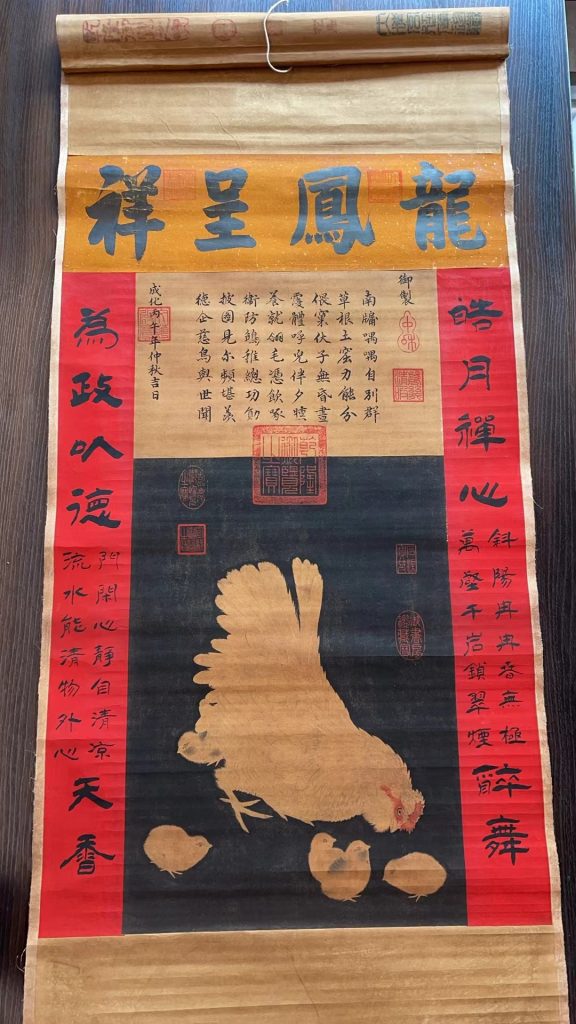 龍鳳呈祥
御製
南牖喁喁自別群
草根土窟力能分
偎窠伏子無昏晝
覆體呼兒伴夕曛
養就翎毛憑飲啄
衛防鶵稚總功勛
披圖見尔頻堪羨
德企慈烏與世聞
成化丙午年仲秋吉日
乾隆御覽之寶
皓月禪心
斜陽冉冉春無極
萬壑千岩鎖翠煙
醉舞
為政以德
門閑心靜自清凉
流水能清物外心
天香